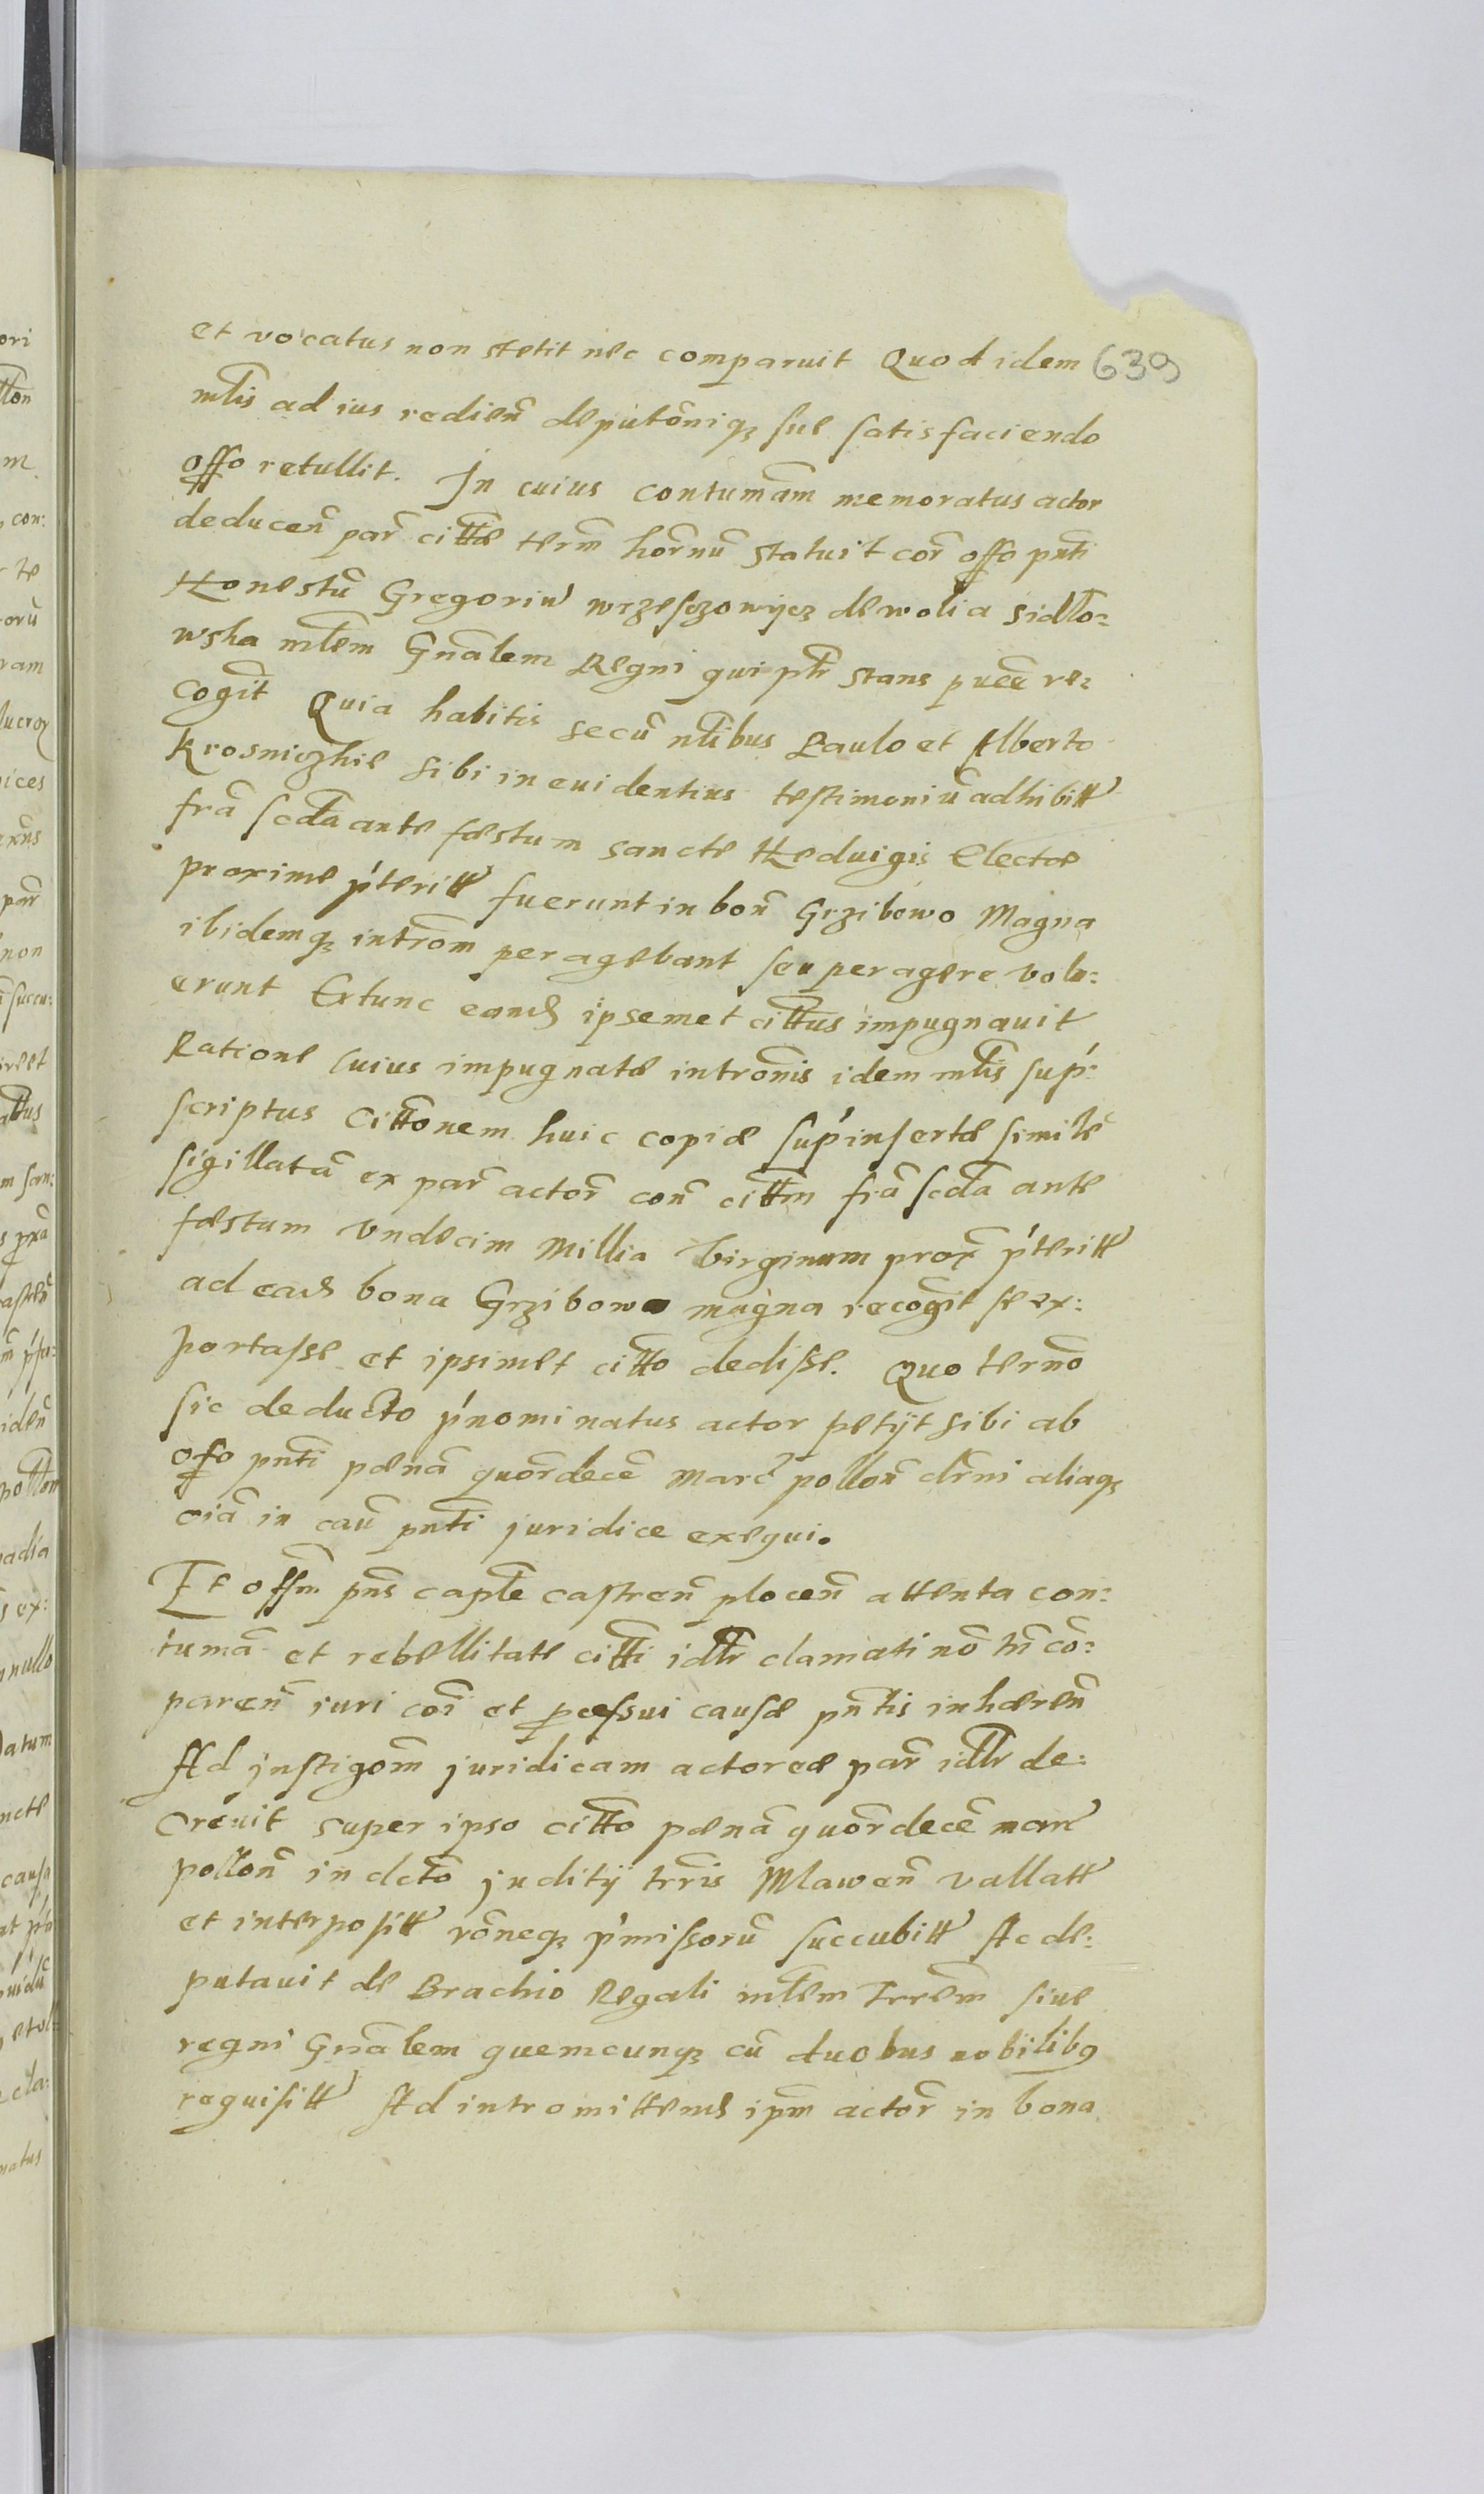 et vocatus non stetit nec comparuit Quod idem 639
mlis ad ius redien̄ deputōniqꝫ sue satisfaciendo
offo retullit. In cuius contumām memoratus actor
deducen̄ par̄ citte term̄ hōrnū statuit cor̄ offo pn̄ti
Honestū Gregoriū wrzesczowycz de wolia sidlo:
wska mlēm Gn̄alem Regni qui ptr̄ stans
cogīt Quia habitis secū nl̄ibus Paulo et Alberto
krosniczkie sibi in euidentius testimoniū adhibitt
frā scda ante fæstum sancte Heduigis Electæ
proxime p'teritt fuerunt in bon̄ Grzibowo Magna
ibidemqꝫ intrōm peragebant seu peragere volu:
erunt Extunc eand ipsemet cittus impugnauit
Ratione cuius impugnatæ intrōnis idem mlīs sup'
scriptus Cittōnem huic copiæ sup'insertæ similē
sigillatā ex par̄ actor̄ con̄ cittm̄ frā scda ante
fæstum Vndecim Millia Virginum prox̄ p'teritt
ad ead bona Grzibowo magna recogīt se ex:
portasse et ipsimet citto dedisse. Quo termō
sic deducto p'nominatus actor petijt sibi ab
offo pn̄ti pænā quōrdecē marc̄ pollon̄ cēni aliaqꝫ
oiā in cau̅ pn̄ti juridice exequi.
Et offm̄ pn̄s captle castren̄ plocen̄ attenta con:
tumā et rebellitate citti idtr̄ clamati nō tn̄ cō:
paren̄ iuri coī et pcessui causæ pn̄tis inhæren̄
Ad jnstigōm juridicam actoreæ par̄ idtr̄ de:
creuit super ipso citto pænā quōrdecē marc̄
pollon̄ in dctō juditij trr̄is Mlawen̄ vallatt
et interpositt rōneqꝫ p'missorū succubitt Ac de:
putauit de Brachio Regali mlēm Trrēm siue
regni Gn̄alem quemcunqꝫ cū duobus nobilibꝰ
requisitt Ad intromittend ipm̄ actor̄ in bona